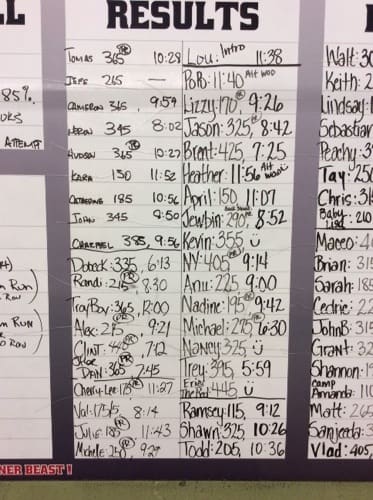 L
RESULTS
85%
ATTEMPT
RUN
ROW
RUN
ROW
NER BEAST!
Tomas 365 PR 10:28
Jeff 265 —
Cameron 365, 9:59
345 8:02
Hudson 365 PR 10:27
Kara 130 11:52
Catherine 185 10:56
John 345 9:50
385, 9:56
335, 6:13
Randi: 215 PR 8:30
TroyBoy: 365, 12:00
Alec: 275 9:21
Clint: 445 PR 7:12
DAN: 365 2:45
Cherry-Lee: 175 PR 11:27
Val: 175/5 8:14
Julie 185 PR 11:43
Michele: PR
Lou: Intro 11:38
Bob: 11:40 Alt WOD
Lizzy: 170 PR 9:26
Jason: 325, PR 8:42
Brent: 425, 7:25
Heather: 11:56 Alt WOD
April: 150 11:07
Jewbin: 290 PR 8:52
Kevin: 355
NY: 405 PR 9:14
Anu: 225 9:00
Nadine: 195 PR 9:42
Michael: 275 PR 6:30
Nancy: 325
Trey: 395, 5:59
445
Ramsey: 115, 9:12
Shawn: 325, 10:26
Todd: 205, 10:36
Walt: 30
Keith: 2
Lindsay:
Sebastian
Peachy: 3
Tay: 250
Chris: 31
Baby Lisa: 210
Maceo: 4
Brian: 315
Sarah: 185
Cedric: 22
JohnB: 315
Grant: 32
Shannon: 19
Camp
Amanda: 110
Matt: 265
Sanjeeda: 3
Vlad: 405,